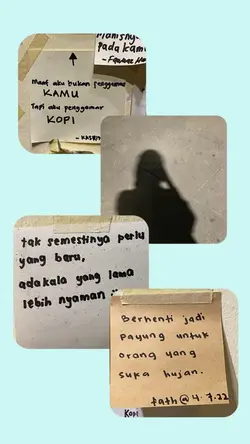 pada kamu
Maaf aku bukan penggemar
KAMU
Tapi aku penggemar
KOPI
tak semestinya perlu
yang baru,
adakala yang lama
lebih nyaman
Berhenti jadi
payung untuk
orang yang
suka hujan.
fath@4.7.22
KOPI